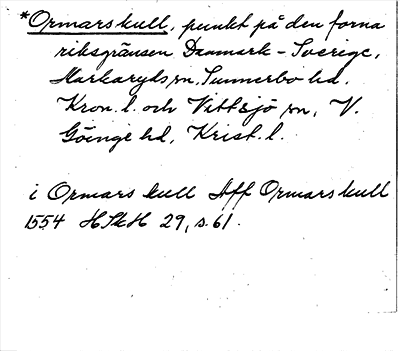 *Ormarskull, punkt på den forna
riksgränsen Danmark - Sverige,
Markaryds sn, Sunnerbo hd,
Kron. l. och Vittsjö sn, V.
Göinge hd, Krist. l.
i Ormars kull Aff Ormars kull
1554 HSkH 29, s. 61.